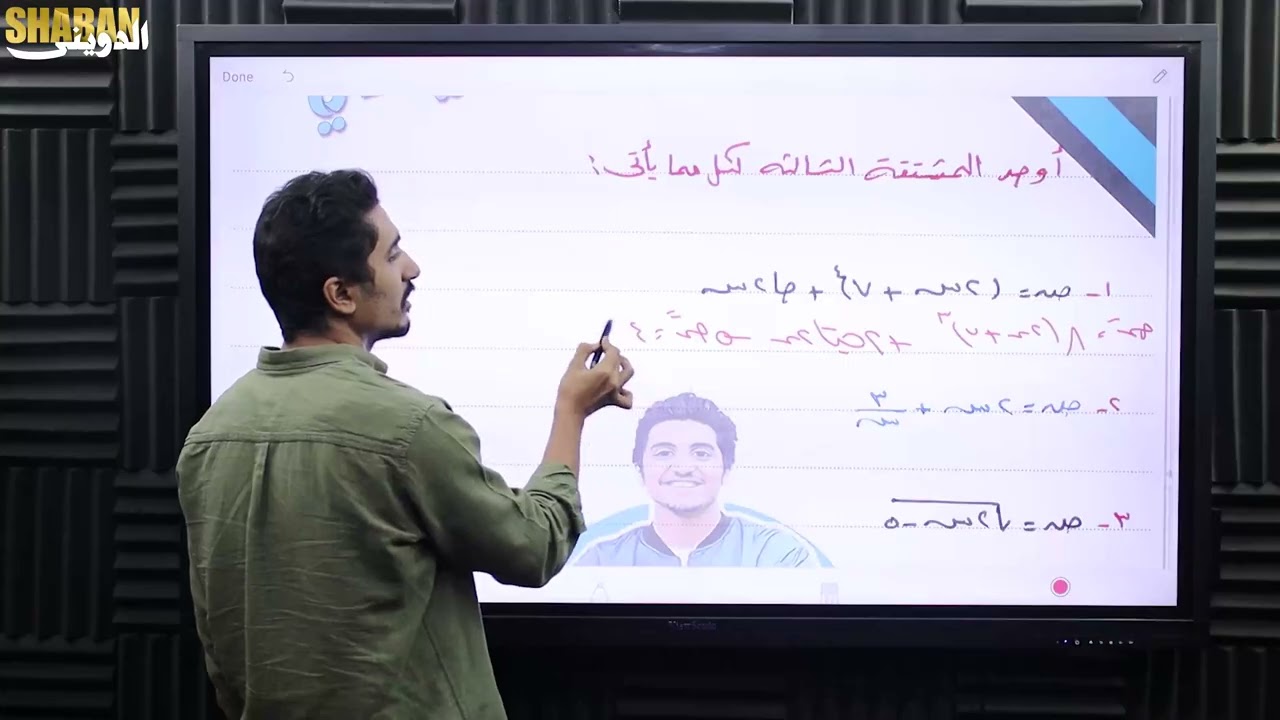 SHABAN
الدويني
Done
أوجد المشتقة الثالثة لكل مما يأتى:
١- صـ = (٢س + ٧)^٤ + حا٢س
صـَ = ٨(٢س+٧)^٣ + ٢حتا٢س صـً = ٤
٢- صـ = ٢س + ٣/س
٣- صـ = √(٢س - ٥)
ViewSonic